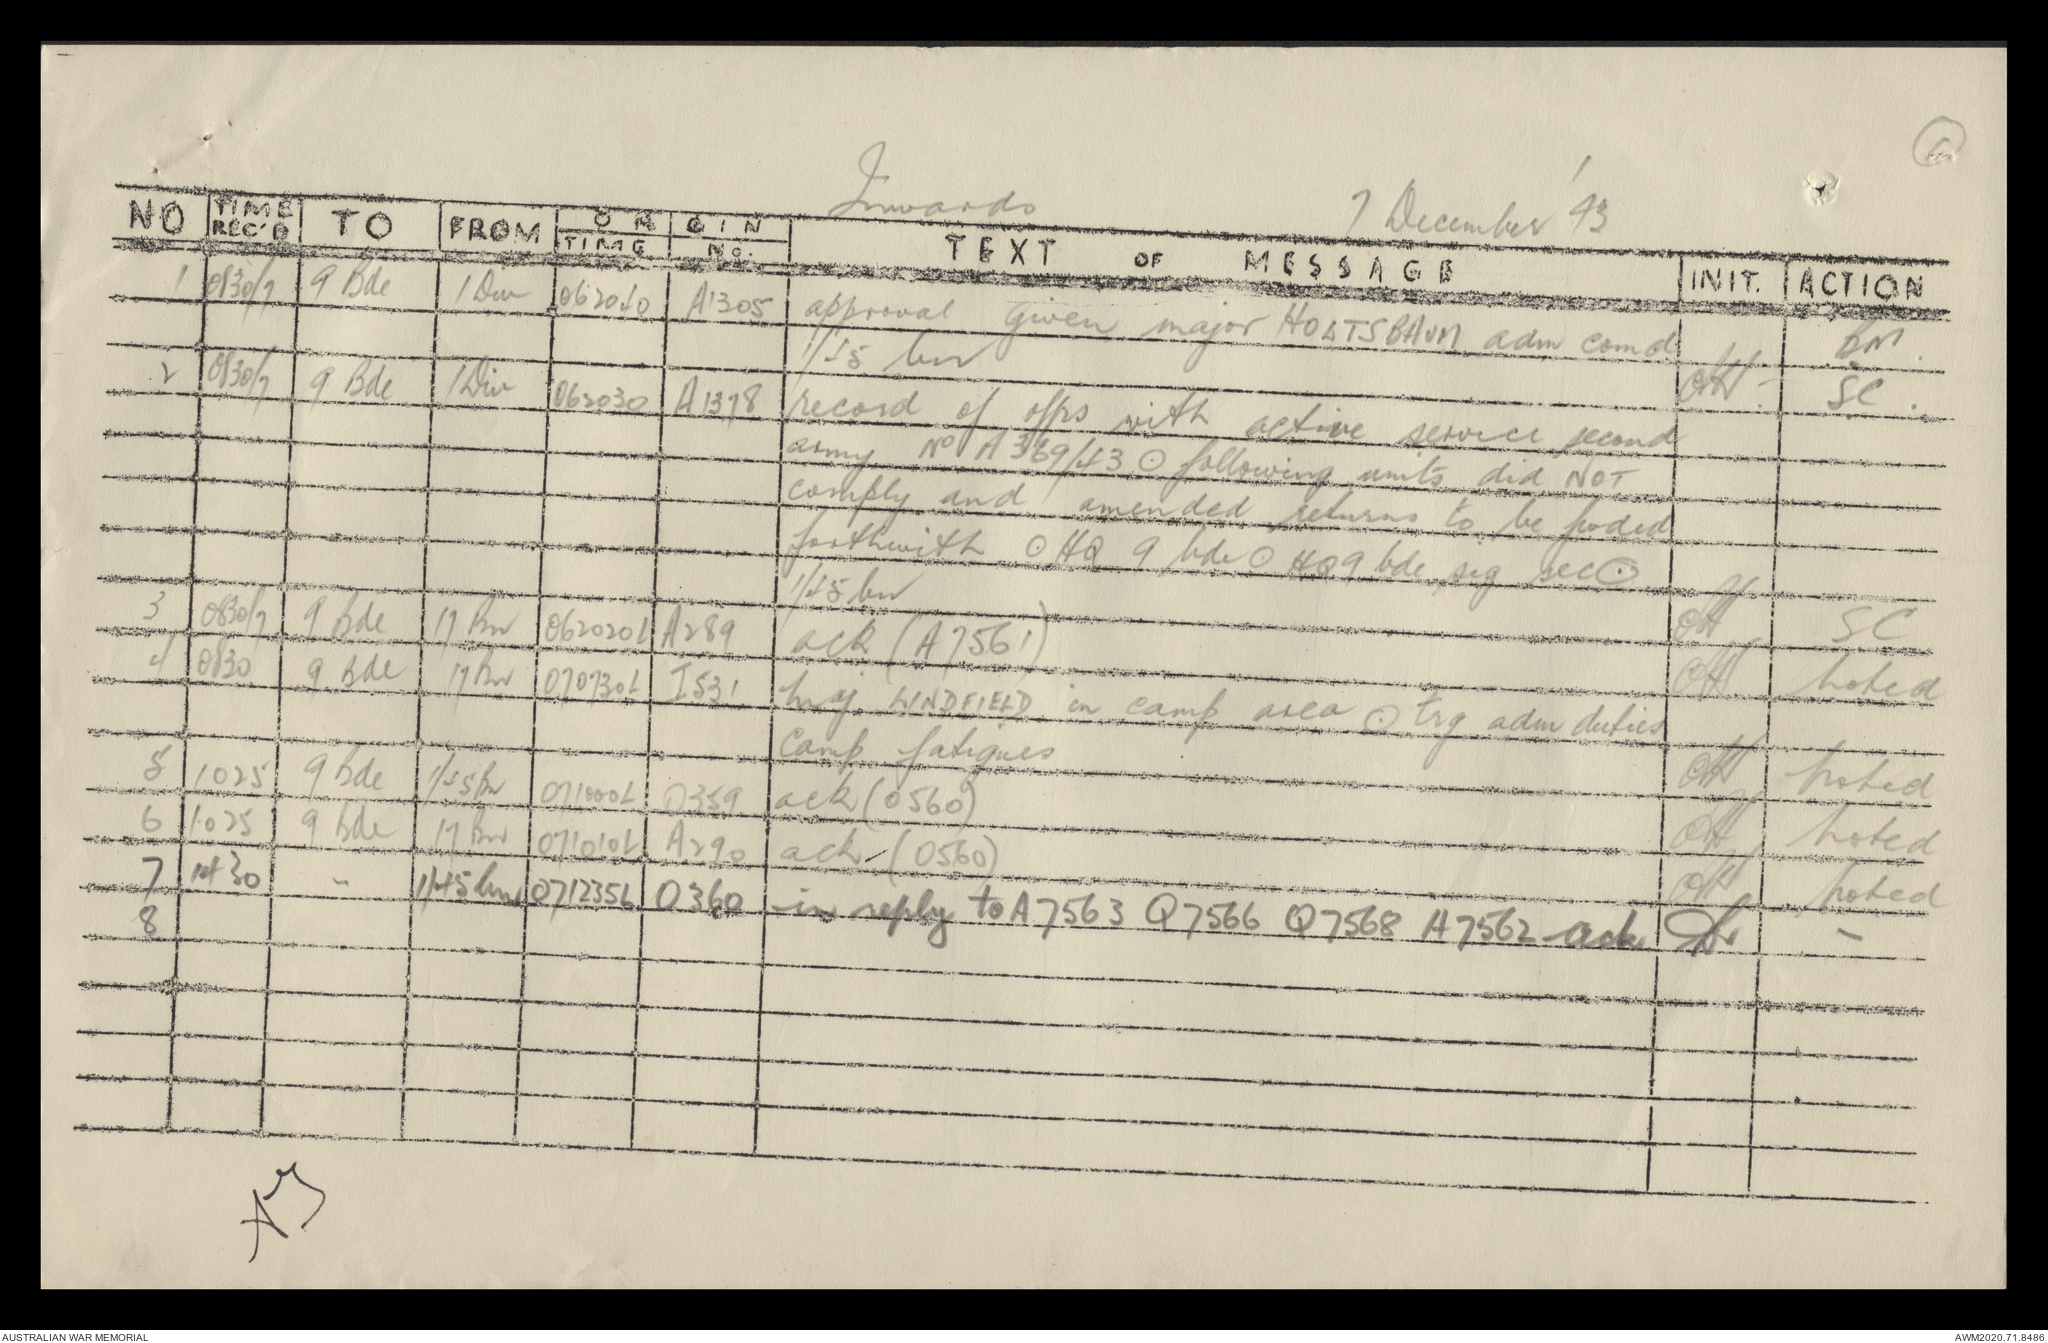 Inwards 7 December '43
NO TIME REC'D TO FROM ORIGIN TIME No. TEXT OF MESSAGE INIT. ACTION
1 0830/7 9 Bde 1 Div 062040 A1305 approval given major HOLTSBAUM adm comd BM.
1/45 bn SC.
2 0830/7 9 Bde 1 Div 062030 A1378 record of offrs with active service second
army No A369/43 ⊙ following units did NOT
comply and amended returns to be fwded
forthwith ⊙ HQ 9 bde ⊙ HQ 9 bde sig sec ⊙
1/45 bn SC
3 0830/7 9 Bde 17 Bn 062020L A289 ack (A7561) noted
4 0830 9 Bde 17 Bn 070730L I531 maj. LINDFIELD in camp area ⊙ trg adm duties
camp fatigues noted
5 1025 9 bde 1/45 Bn 071000L O359 ack (O560) noted
6 1025 9 bde 17 Bn 071010L A290 ack (O560) noted
7 1430 - 1/45 bn 071235L O360 in reply to A7563 Q7566 Q7568 A7562 ack -
8
AUSTRALIAN WAR MEMORIAL AWM2020.71.8486